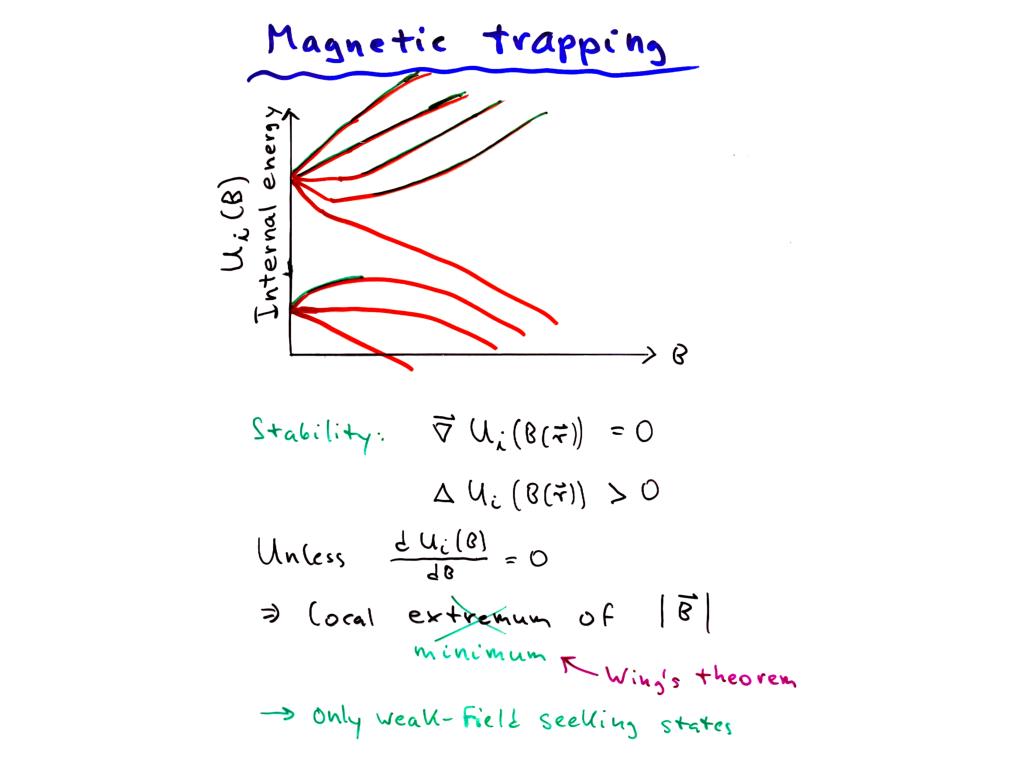 Magnetic trapping
U_i(B)
Internal energy
B
Stability: ∇⃗ U_i(B(r⃗)) = 0
Δ U_i(B(r⃗)) > 0
Unless dU_i(B)/dB = 0
⇒ Local extremum of |B⃗|
minimum
Wing's theorem
→ only weak-field seeking states